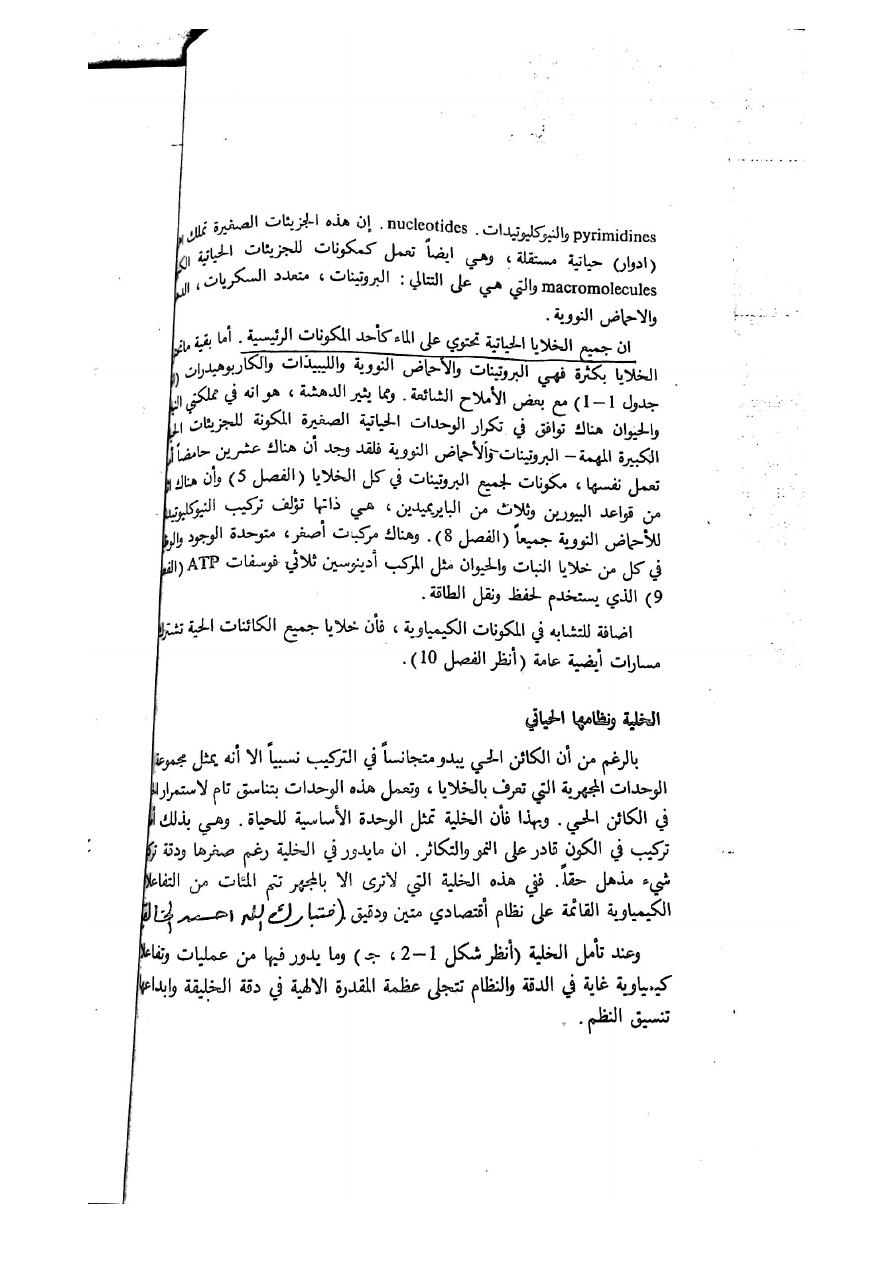 pyrimidines والنيوكليوتيدات . nucleotides . إن هذه الجزيئات الصغيرة تملك
(ادوار) حياتية مستقلة ، وهي ايضاً تعمل كمكونات للجزيئات الحياتية
macromolecules والتي هي على التتالي : البروتينات ، متعدد السكريات ،
والاحماض النووية .
ان جميع الخلايا الحياتية تحتوي على الماء كأحد المكونات الرئيسية . أما بقية
الخلايا بكثرة فهي البروتينات والأحماض النووية والليبيدات والكاربوهيدرات
جدول 1–1) مع بعض الأملاح الشائعة . ومما يثير الدهشة ، هو انه في مملكتي
والحيوان هناك توافق في تكرار الوحدات الحياتية الصغيرة المكونة للجزيئات
الكبيرة المهمة – البروتينات والأحماض النووية فلقد وجد أن هناك عشرين حامضاً
تعمل نفسها ، مكونات لجميع البروتينات في كل الخلايا (الفصل 5) وأن هناك
من قواعد البيورين وثلاث من البايريميدين ، هي ذاتها تؤلف تركيب
للأحماض النووية جميعاً (الفصل 8) . وهناك مركبات أصغر ، متوحدة الوجود
في كل من خلايا النبات والحيوان مثل المركب أدينوسين ثلاثي فوسفات ATP
9) الذي يستخدم لحفظ ونقل الطاقة .
اضافة للتشابه في المكونات الكيمياوية ، فأن خلايا جميع الكائنات الحية
مسارات أيضية عامة (أنظر الفصل 10) .
الخلية ونظامها الحياتي
بالرغم من أن الكائن الحي يبدو متجانساً في التركيب نسبياً الا أنه يمثل مجموعة
الوحدات المجهرية التي تعرف بالخلايا ، وتعمل هذه الوحدات بتناسق تام لاستمرار
في الكائن الحي . وبهذا فأن الخلية تمثل الوحدة الأساسية للحياة . وهي بذلك
تركيب في الكون قادر على النمو والتكاثر . ان مايدور في الخلية رغم صغرها ودقة
شيء مذهل حقاً . ففي هذه الخلية التي لاترى الا بالمجهر تتم المئات من
الكيمياوية القائمة على نظام أقتصادي متين ودقيق (فتبارك الله احسن
وعند تأمل الخلية (أنظر شكل 1–2 ، جـ) وما يدور فيها من عمليات
كيمياوية غاية في الدقة والنظام تتجلى عظمة المقدرة الالهية في دقة الخليقة وابداعها
تنسيق النظم .